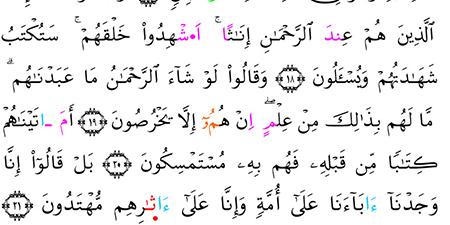 الَّذِينَ هُمْ عِندَ الرَّحْمَٰنِ إِنَاثًا ۚ اَ۬شْهِدُوا خَلْقَهُمْ ۚ سَتُكْتَبُ
شَهَٰدَتُهُمْ وَيُسْـَٔلُونَ ۝١٨ وَقَالُوا لَوْ شَآءَ الرَّحْمَٰنُ مَا عَبَدْنَٰهُم ۗ
مَّا لَهُم بِذَٰلِكَ مِنْ عِلْمٍ ۖ اِنْ هُمُۥٓ إِلَّا يَخْرُصُونَ ۝١٩ أَمَ ـاتَيْنَٰهُمْ
كِتَٰبًا مِّن قَبْلِهِۦ فَهُم بِهِۦ مُسْتَمْسِكُونَ ۝٢٠ بَلْ قَالُوٓا إِنَّا
وَجَدْنَآ ءَابَآءَنَا عَلَىٰٓ أُمَّةٍ وَإِنَّا عَلَىٰٓ ءَاثَٰرِهِم مُّهْتَدُونَ ۝٢١